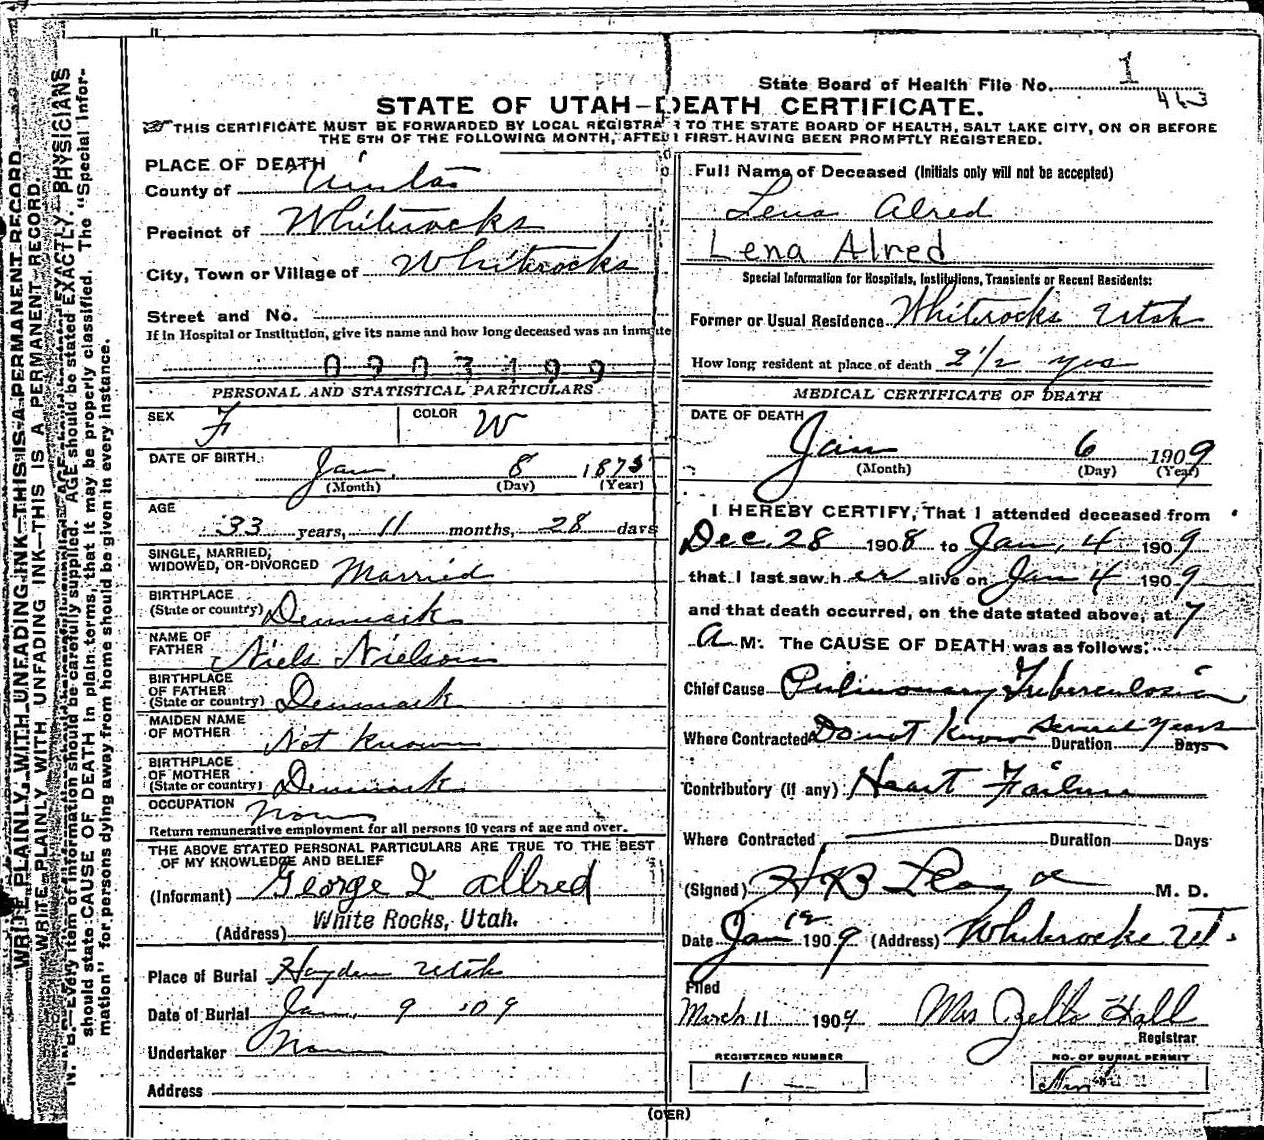 State Board of Health File No. 1
463
STATE OF UTAH—DEATH CERTIFICATE.
THIS CERTIFICATE MUST BE FORWARDED BY LOCAL REGISTRAR TO THE STATE BOARD OF HEALTH, SALT LAKE CITY, ON OR BEFORE
THE 5TH OF THE FOLLOWING MONTH, AFTER FIRST HAVING BEEN PROMPTLY REGISTERED.
PLACE OF DEATH
County of Uinta
Precinct of Whiterocks
City, Town or Village of Whiterocks
Street and No.
If in Hospital or Institution, give its name and how long deceased was an inmate
0903199
PERSONAL AND STATISTICAL PARTICULARS
SEX F COLOR W
DATE OF BIRTH. Jan. 8 1875
(Month) (Day) (Year)
AGE
33 years, 11 months, 28 days
SINGLE, MARRIED,
WIDOWED, OR DIVORCED Married
BIRTHPLACE
(State or country) Denmark
NAME OF
FATHER Niels Nielson
BIRTHPLACE
OF FATHER
(State or country) Denmark
MAIDEN NAME
OF MOTHER Not Known
BIRTHPLACE
OF MOTHER
(State or country) Denmark
OCCUPATION None
Return remunerative employment for all persons 10 years of age and over.
THE ABOVE STATED PERSONAL PARTICULARS ARE TRUE TO THE BEST
OF MY KNOWLEDGE AND BELIEF
(Informant) George I Allred
(Address) White Rocks, Utah.
Place of Burial Hayden Utah
Date of Burial Jan. 9 '09
Undertaker None
Address
Full Name of Deceased (Initials only will not be accepted)
Lena Alred
Lena Alred
Special Information for Hospitals, Institutions, Transients or Recent Residents:
Former or Usual Residence Whiterocks Utah
How long resident at place of death 2 1/2 yrs
MEDICAL CERTIFICATE OF DEATH
DATE OF DEATH
Jan 6 1909
(Month) (Day) (Year)
I HEREBY CERTIFY, That I attended deceased from
Dec. 28 1908 to Jan. 4 1909
that I last saw her alive on Jan 4 1909
and that death occurred, on the date stated above, at 7
A M. The CAUSE OF DEATH was as follows:
Chief Cause Pulmonary Tuberculosis
Where Contracted Do not Know Duration several years Days
Contributory (if any) Heart Failure
Where Contracted Duration Days
(Signed) H B M. D.
Date Jan 12 1909 (Address) Whiterocks Ut.
Filed
March 11 1909 Mrs Zella Hall
Registrar
REGISTERED NUMBER
1
NO. OF BURIAL PERMIT
(OVER)
WRITE PLAINLY, WITH UNFADING INK—THIS IS A PERMANENT RECORD.
WRITE PLAINLY WITH UNFADING INK—THIS IS A PERMANENT RECORD.
N. B.—Every item of information should be carefully supplied. AGE should be stated EXACTLY. PHYSICIANS
should state CAUSE OF DEATH in plain terms, that it may be properly classified. The "Special Infor-
mation" for persons dying away from home should be given in every instance.